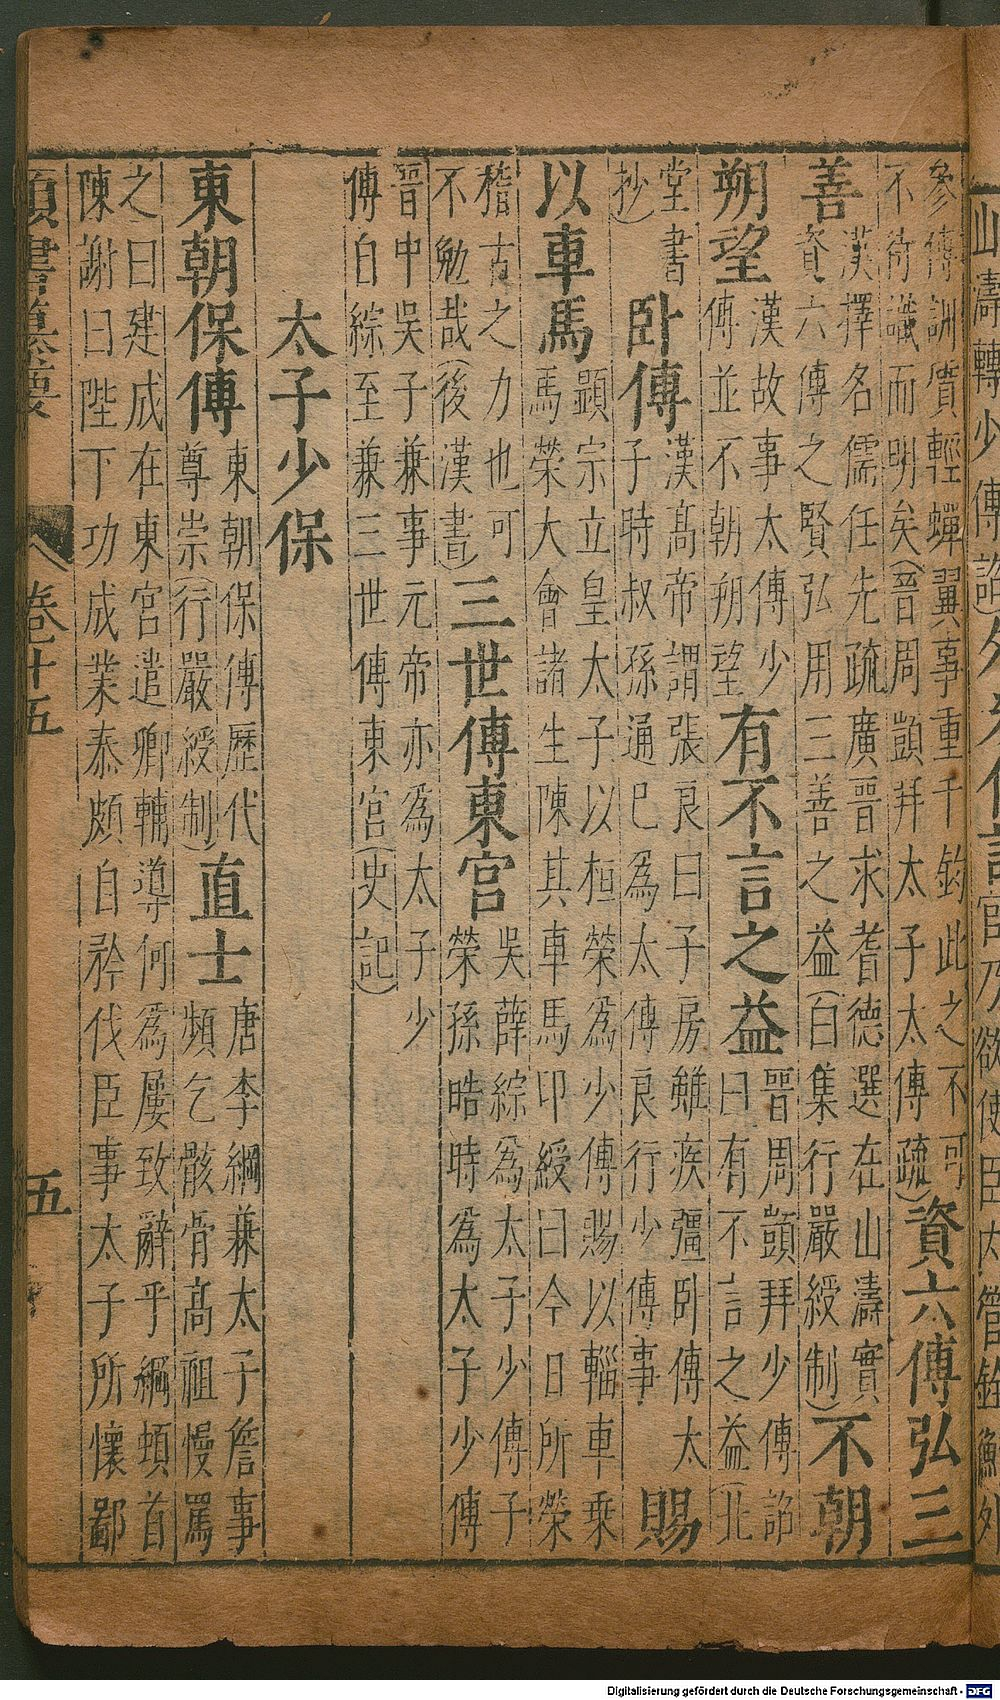 山濤轉少傅詔
參傅訓質輕蟬翼事重千鈞此之不可
不待識而明矣(晉周顗拜太子太傅疏)
資六傅弘三
善
漢擇名儒任先疏廣晉求耆德選在山濤實
資六傅之賢弘用三善之益(白集行嚴綬制)
不朝
朔望
漢故事太傅少
傅並不朝朔望
有不言之益
晉周顗拜少傅詔
曰有不言之益(北
堂書
抄)
臥傅
漢髙帝謂張良曰子房雖疾彊臥傅太
子時叔孫通已為太傅良行少傅事
賜
以車馬
顯宗立皇太子以桓榮為少傅賜以輜車乘
馬榮大會諸生陳其車馬印綬曰今日所榮
稽古之力也可
不勉哉(後漢書)
三世傅東宮
吳薛綜為太子少傅子
榮孫皓時為太子少傅
晉中吳子兼事元帝亦為太子少
傅自綜至兼三世傅東宮(史記)
太子少保
東朝保傅
東朝保傅歷代
尊崇(行嚴綬制)
直士
唐李綱兼太子詹事
頻乞骸骨髙祖慢罵
之曰建成在東宮遣卿輔導何為屢致辭乎綱頓首
陳謝曰陛下功成業泰頗自矜伐臣事太子所懷鄙
類書纂要 卷十五 五
Digitalisierung gefördert durch die Deutsche Forschungsgemeinschaft - DFG